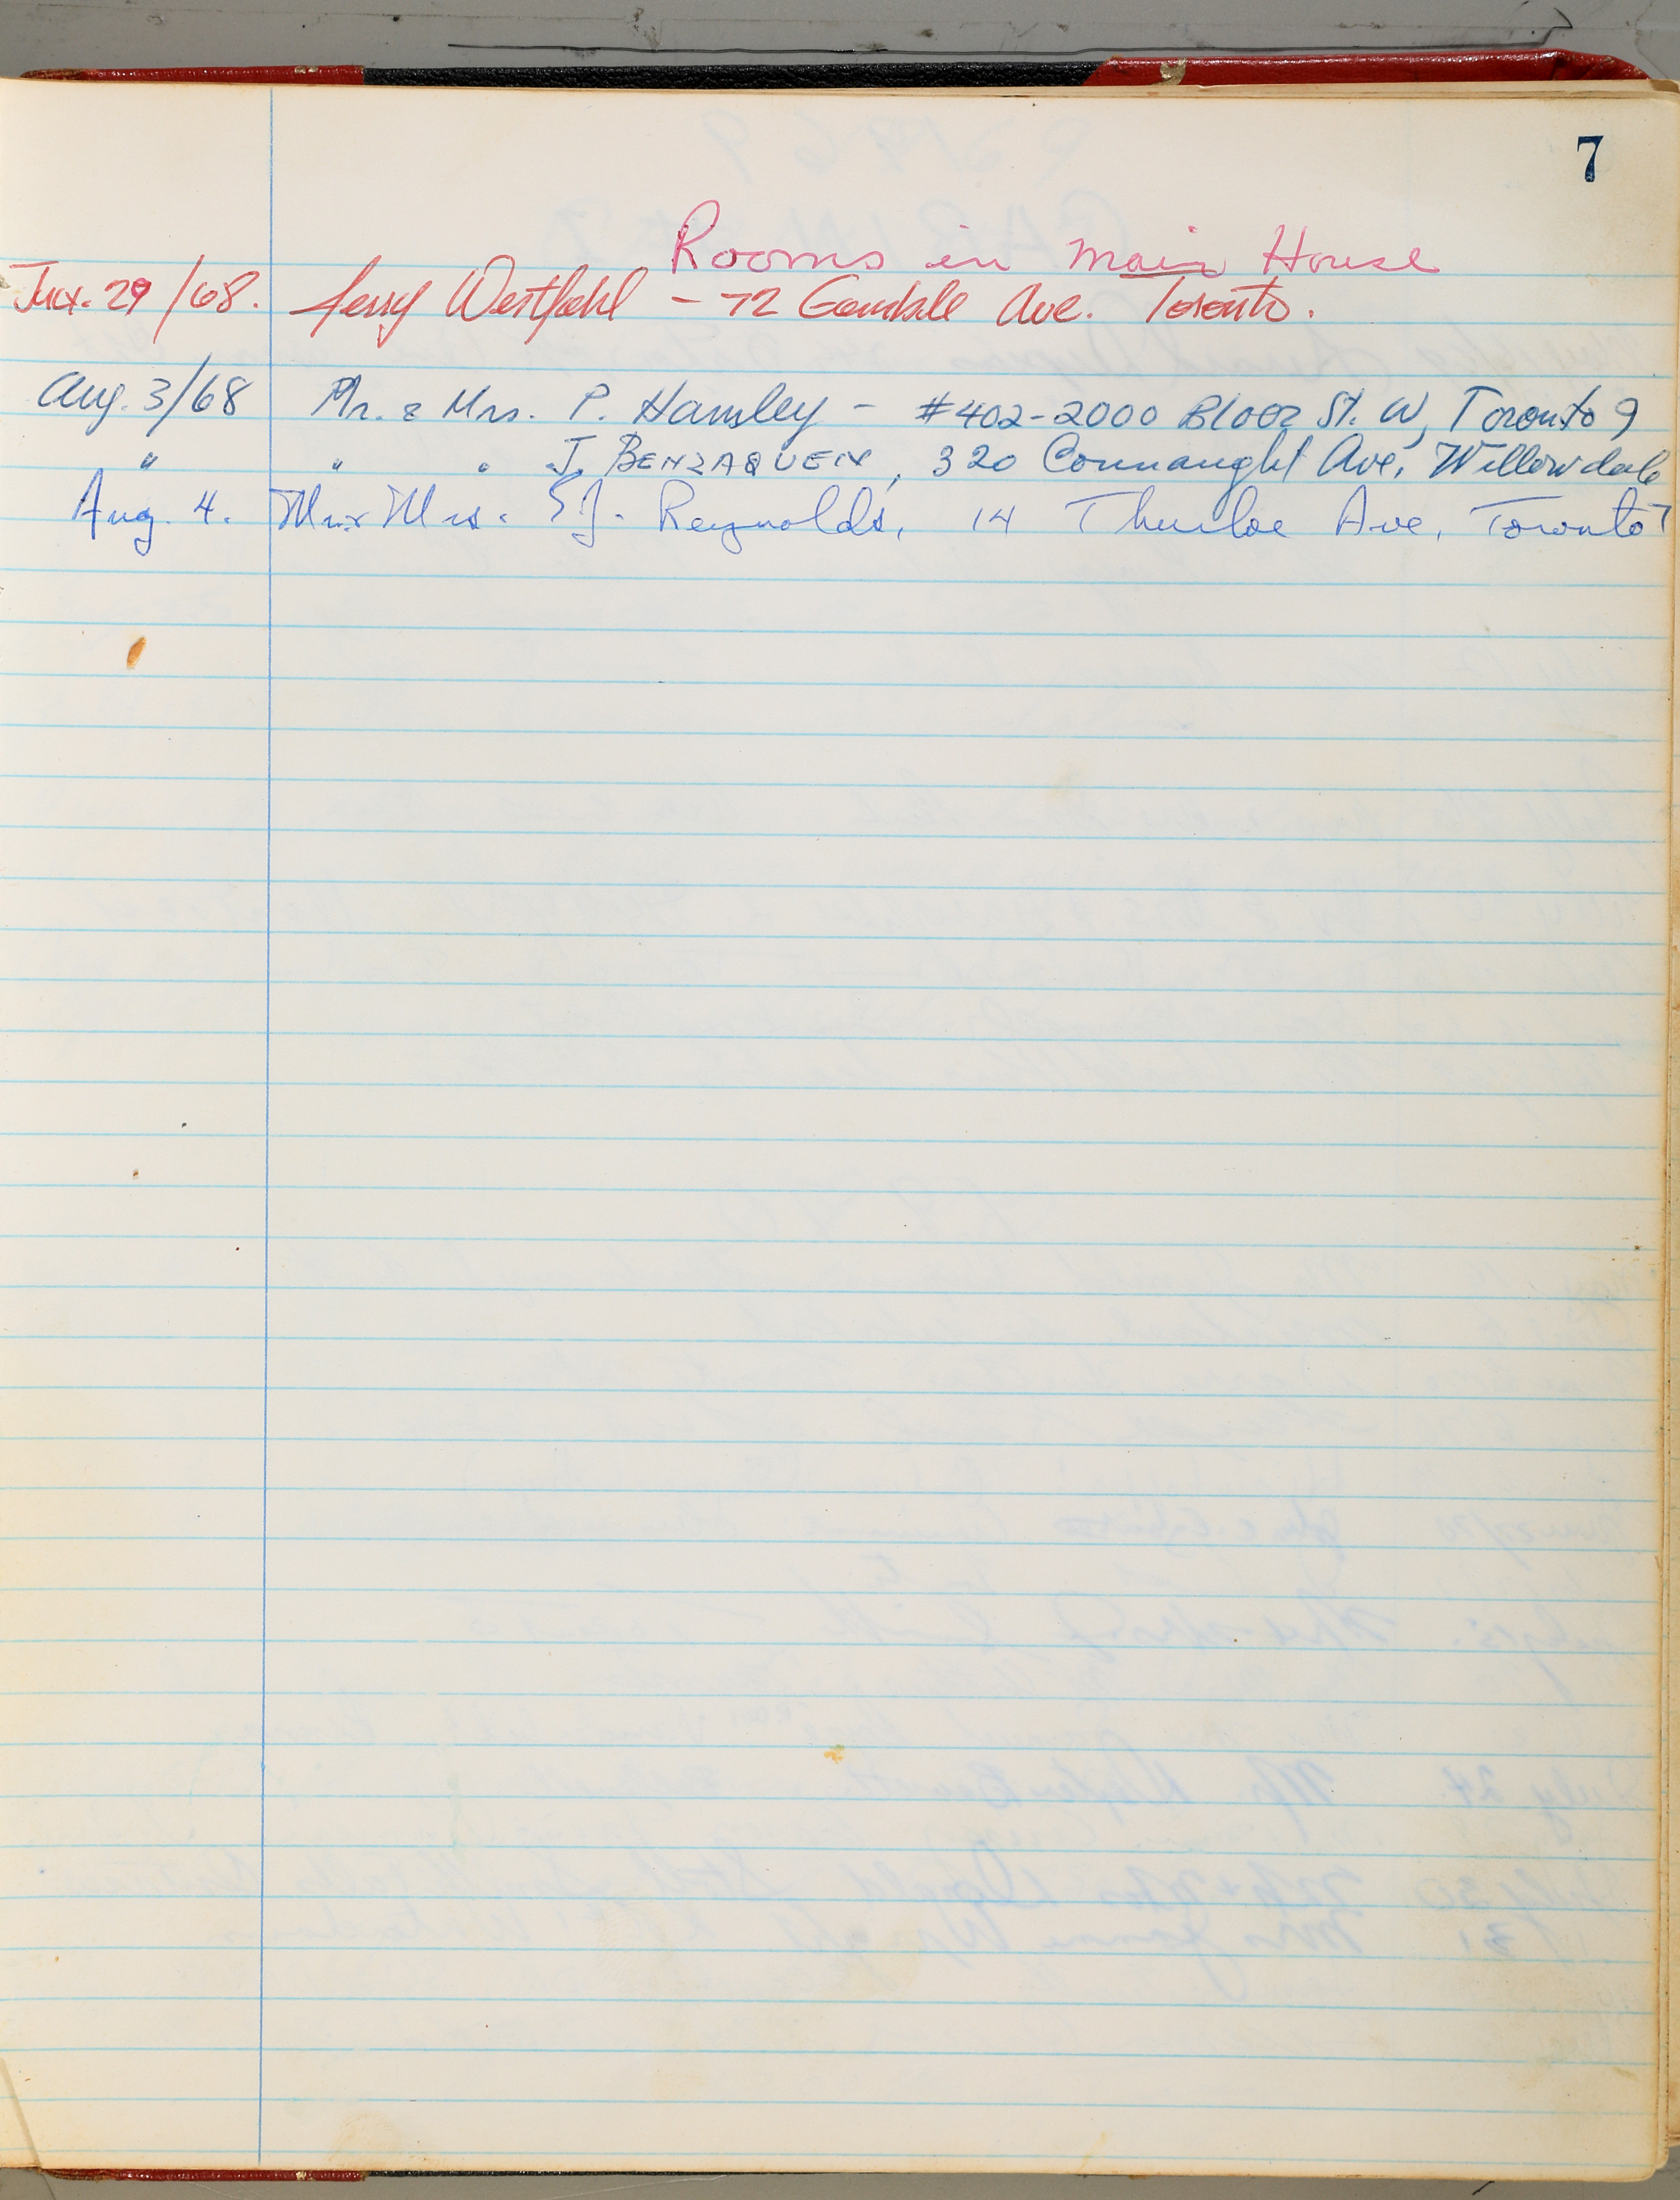 7
Rooms in main House
Jun. 29/68. Jerry Westfehl - 72 Gamble Ave. Toronto.
Aug. 3/68 Mr. & Mrs. P. Hamley - #402-2000 Bloor St. W, Toronto 9
" " " J. BENZAQUEN, 320 Connaught Ave, Willowdale
Aug. 4. Mr & Mrs. S.J. Reynolds, 14 Thurloe Ave, Toronto 7